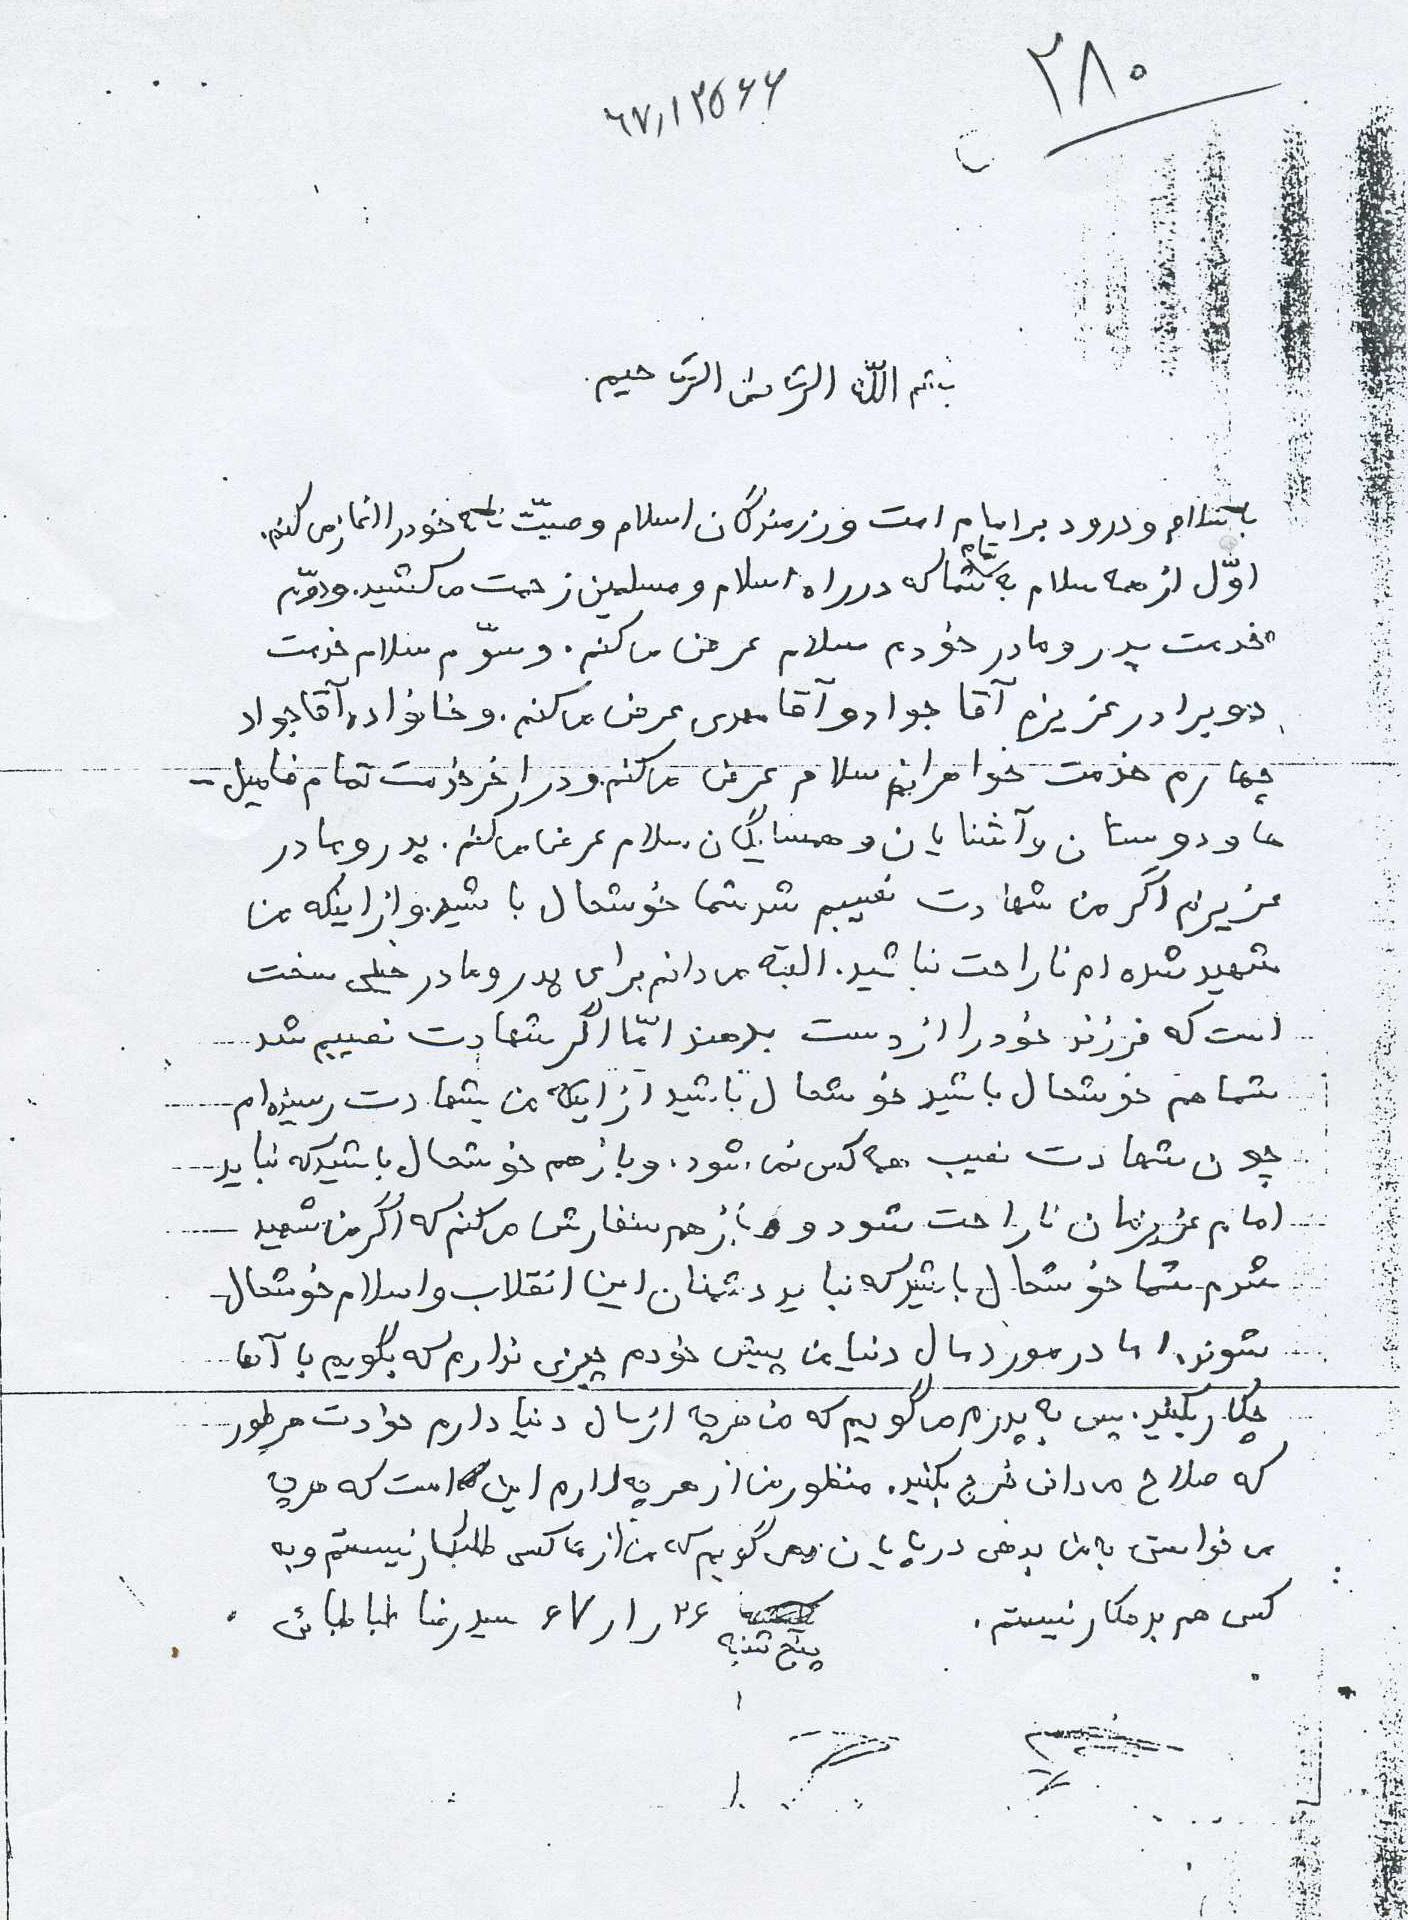 ۲۸۰
۶۷٫۱۳۵۶۶
بسم الله الرحمن الرحیم.
با سلام و درود بر امام امت و رزمندگان اسلام وصیّت نامه خود را آغاز می کنم.
اوّل از همه سلام به شما که در راه اسلام و مسلمین زحمت می کشید. و دوّم
خدمت پدر و مادر خودم سلام عرض می کنم. و سوّم سلام خدمت
دو برادر عزیزم آقا جواد و آقا مهدی عرض می کنم. و خانواده آقا جواد
چهارم خدمت خواهرانم سلام عرض می کنم. و در آخر خدمت تمام فامیل -
ها و دوستان و آشنایان و همسایگان سلام عرض می کنم. پدر و مادر
عزیزم اگر من شهادت نصیبم شد شما خوشحال باشید و از اینکه من
شهید شده ام ناراحت نباشید. البته می دانم برای پدر و مادر خیلی سخت
است که فرزند خود را از دست بدهند امّا اگر شهادت نصیبم شد
شما هم خوشحال باشید خوشحال باشید از اینکه من بشهادت رسیده ام
چون شهادت نصیب همه کس نمی شود. و باز هم خوشحال باشید که نباید
امام عزیزمان ناراحت شود و باز هم سفارش می کنم که اگر من شهید
شدم شما خوشحال باشید که نباید دشمنان این انقلاب و اسلام خوشحال
شوند. اما در مورد مال دنیا من پیش خودم چیزی ندارم که بگویم با آنها
چکار بکنید. پس به پدرم می گویم که من هرچه از مال دنیا دارم خودت هر طور
که صلاح می دانی خرج بکنید. منظور من از هرچه دارم این است که هرچه
می خواستی به من بدهی در پایان می گویم که من از کسی طلبکار نیستم و به
کسی هم بدهکار نیستم. ۲۶ ر ۱ ر ۶۷ سید رضا طباطبائی
پنج شنبه